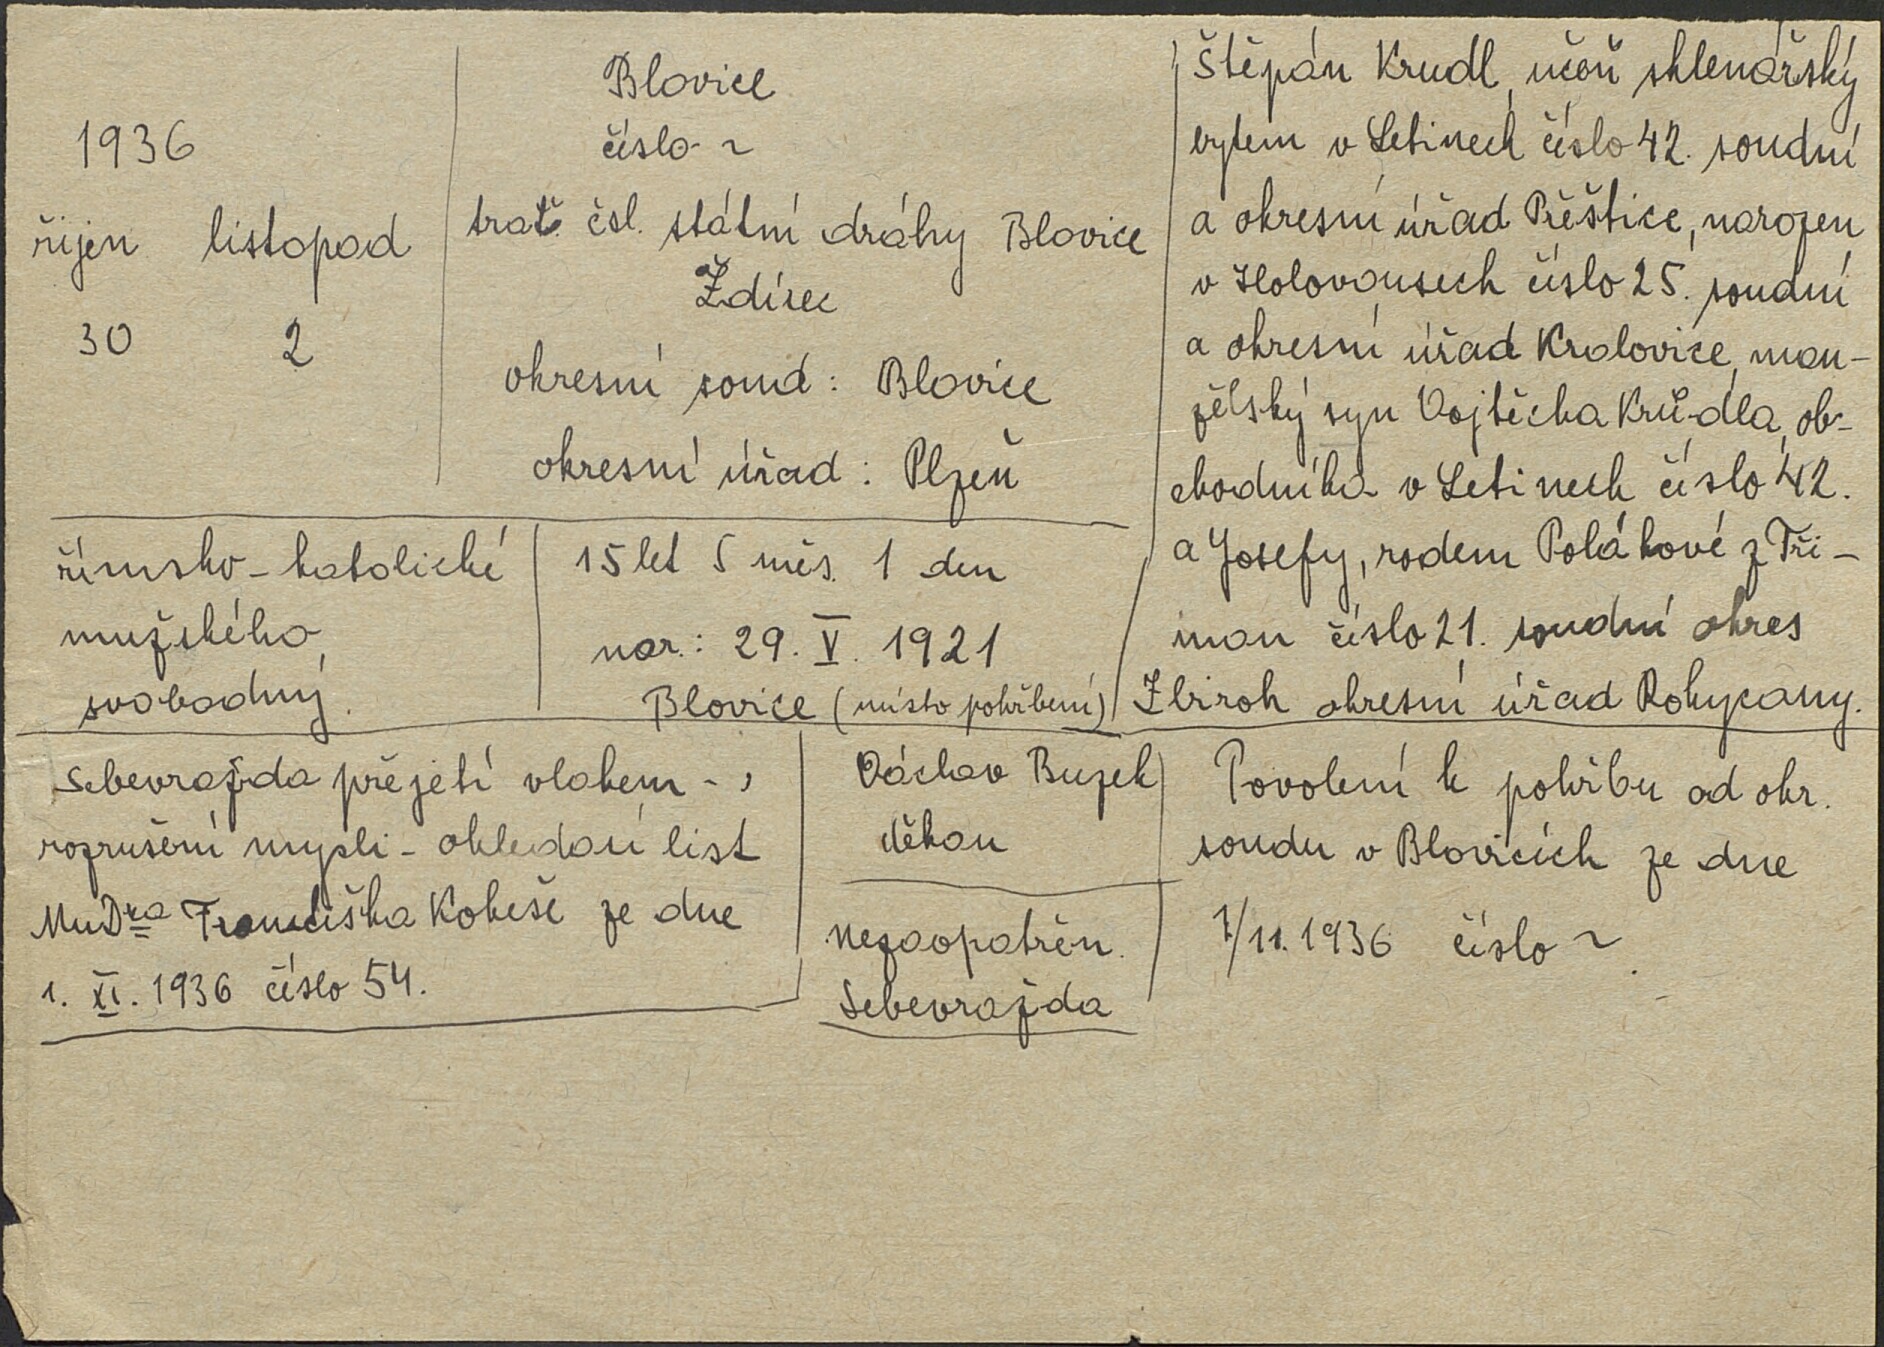 1936
říjen listopad
30 2
Blovice
číslo ~
trať čsl. státní dráhy Blovice
Ždírec
okresní soud: Blovice
okresní úřad: Plzeň
Štěpán Krudl, učeň sklenářský
bytem v Letinech číslo 42. soudní
a okresní úřad Přeštice, narozen
v Holovousech číslo 25. soudní
a okresní úřad Kralovice, man-
želský syn Vojtěcha Krudla, ob-
chodníka v Letinech číslo 42.
a Josefy, rodem Polákové z Tři-
man číslo 21. soudní okres
Zbiroh okresní úřad Rokycany.
římsko-katolické
mužského,
svobodný.
15 let 5 měs. 1 den
nar.: 29. V. 1921
Blovice (místo pohřbení)
Sebevražda přejetí vlakem -,
rozrušení mysli - ohledací list
MuDra Františka Kobeše ze dne
1. XI. 1936 číslo 54.
Václav Buzek
děkan
nezaopatřen.
Sebevražda
Povolení k pohřbu od okr.
soudu v Blovicích ze dne
1/11. 1936 číslo ~.